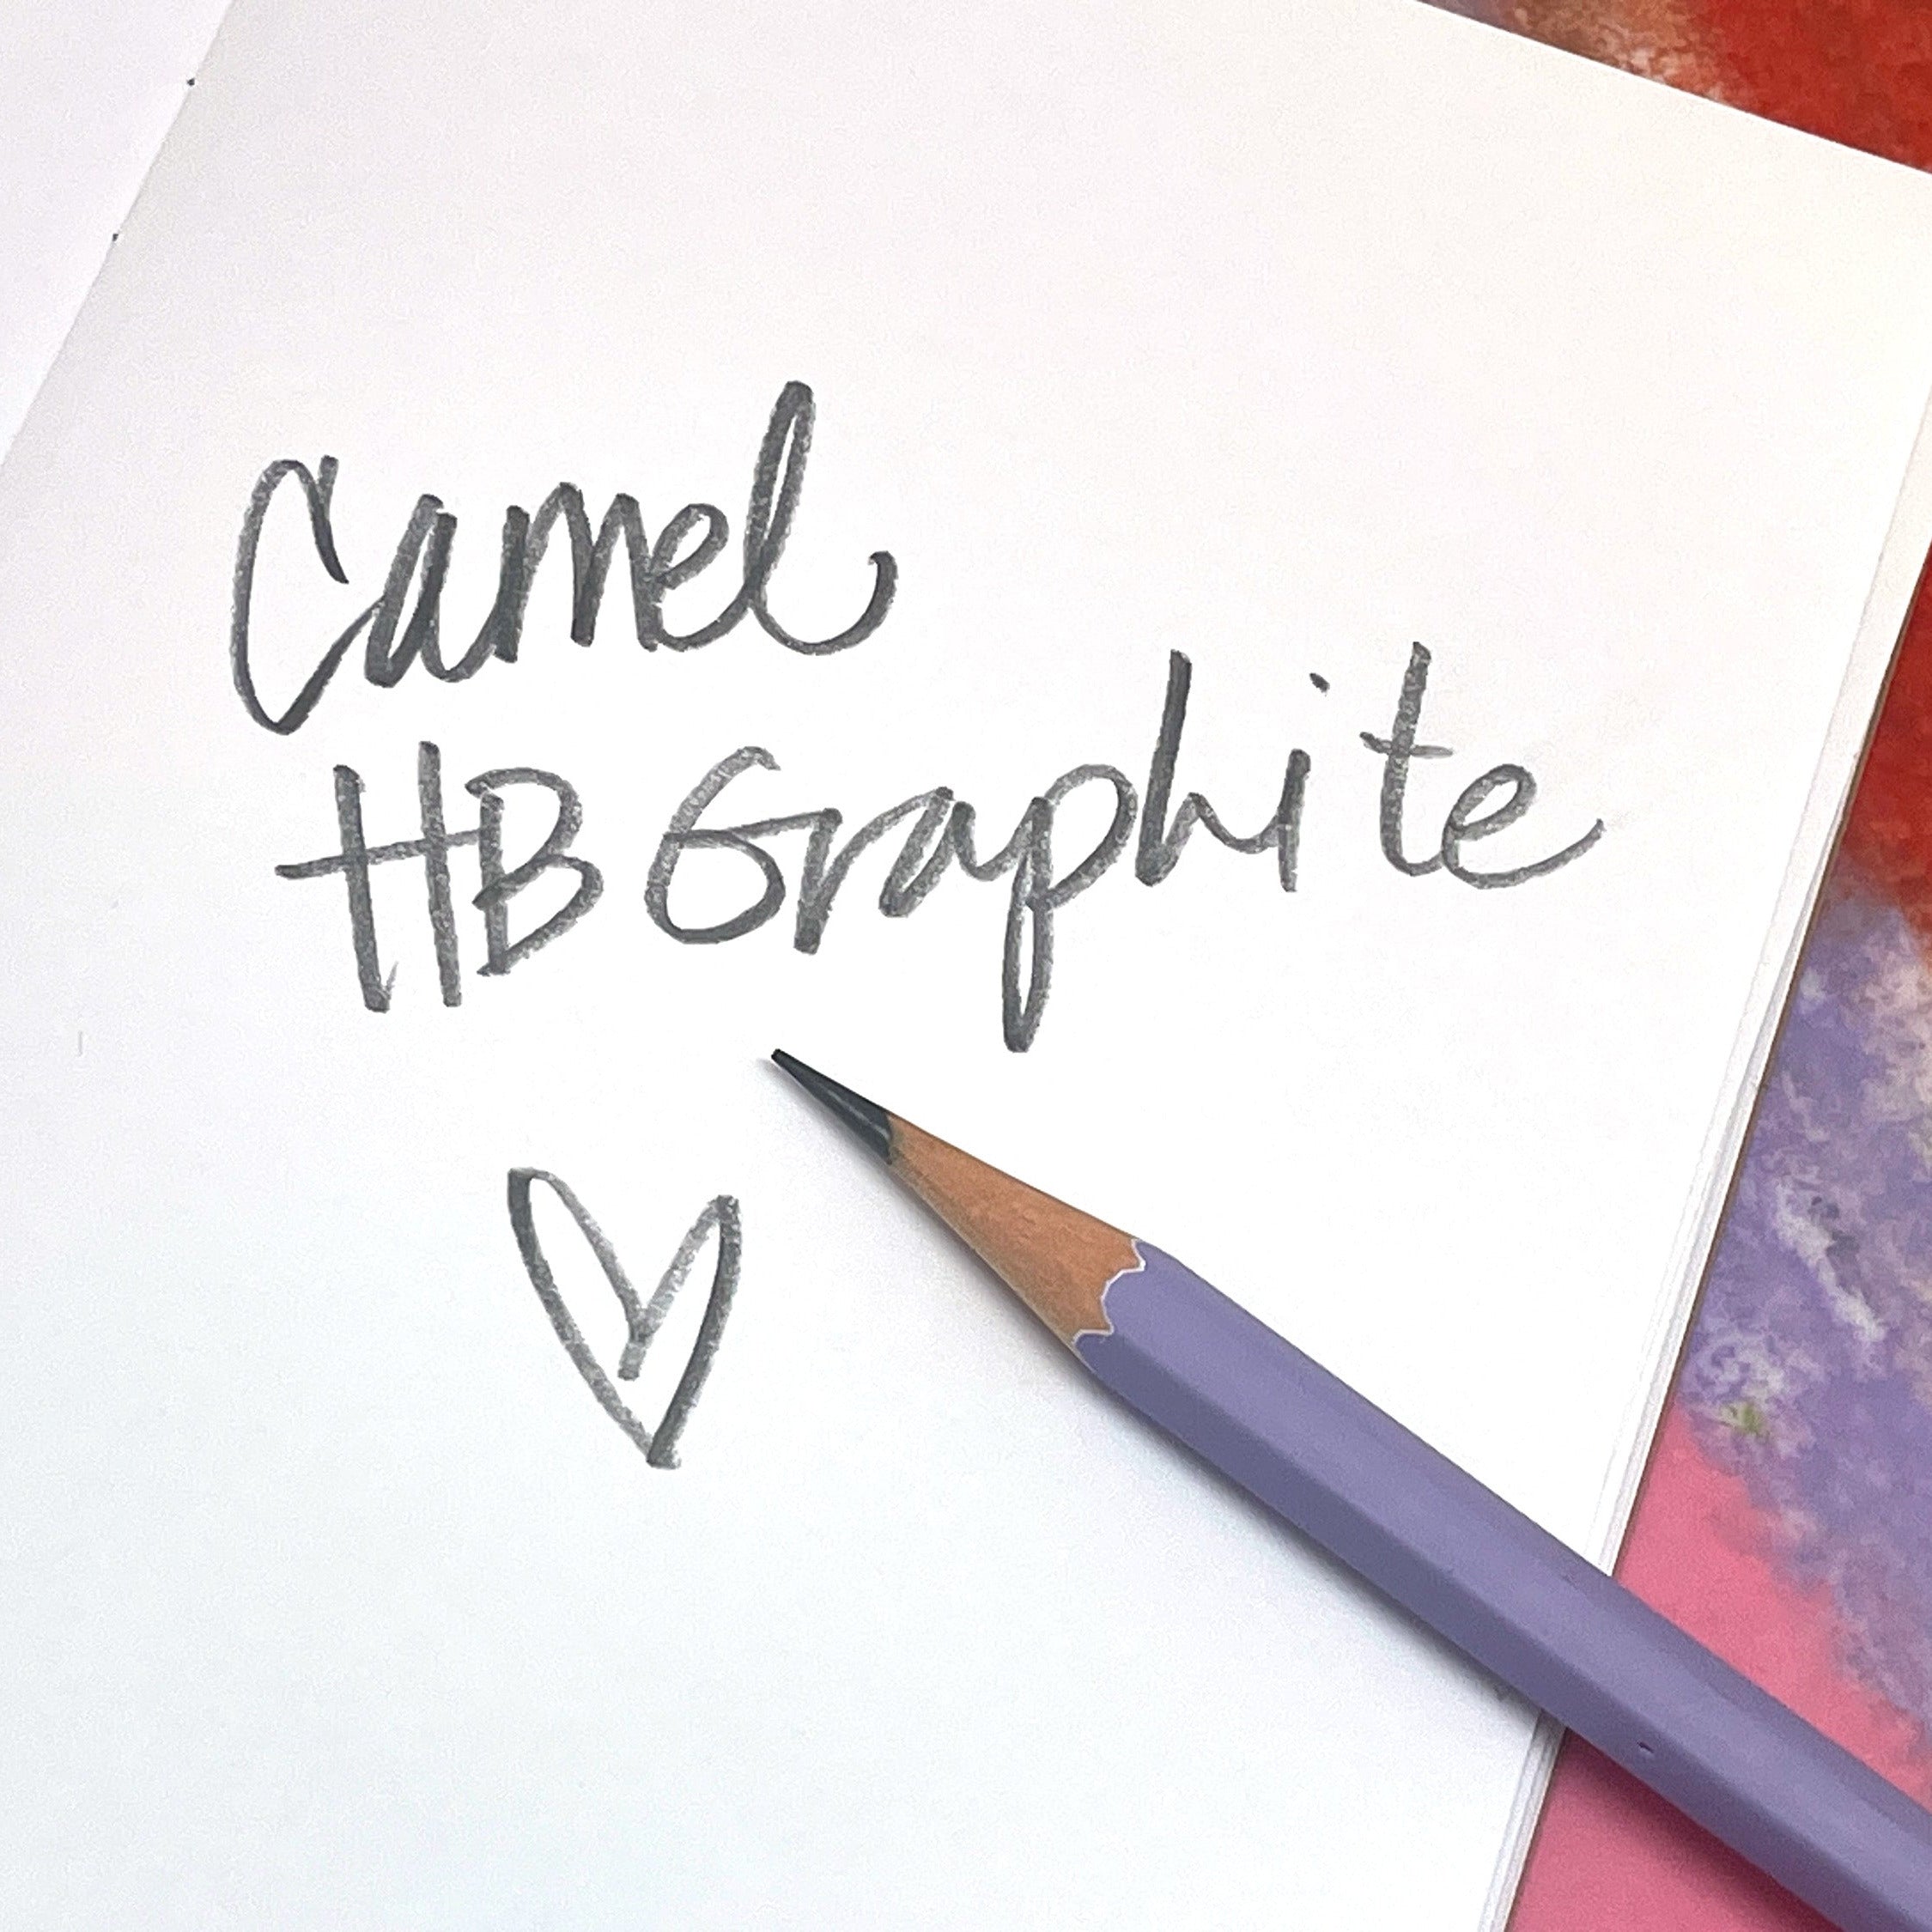 Camel
HB Graphite